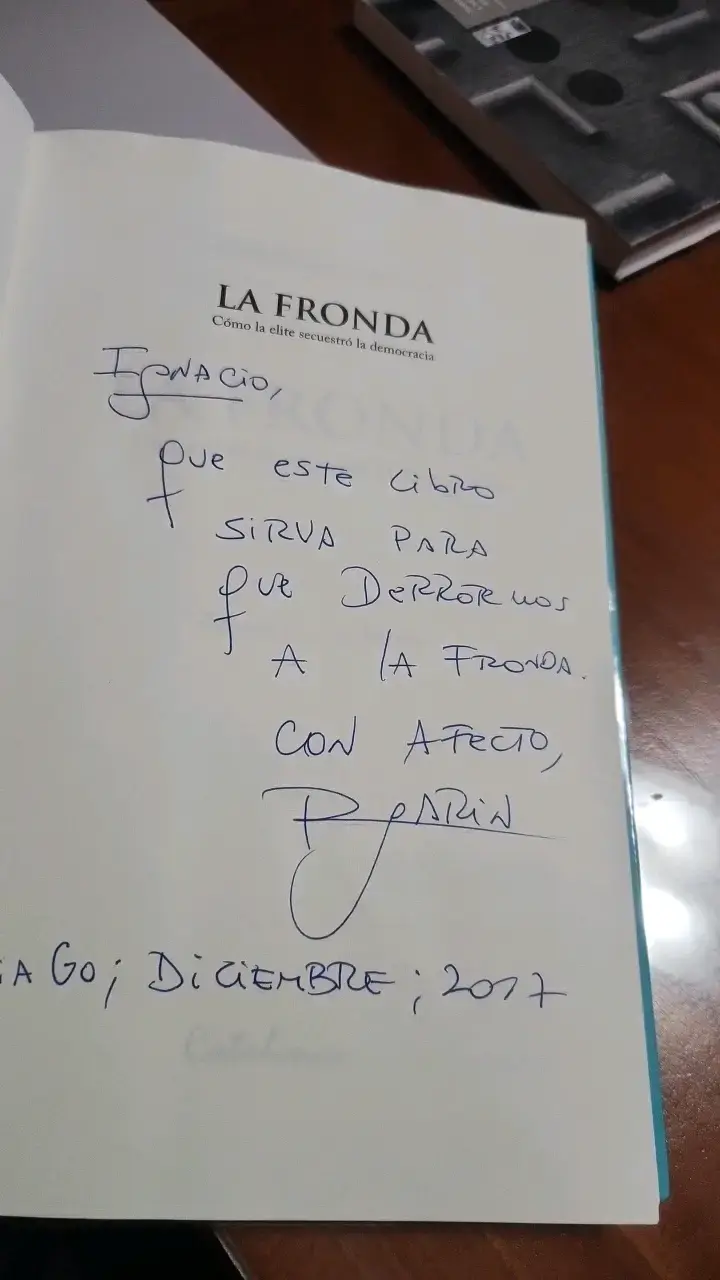 LA FRONDA
Cómo la elite secuestró la democracia
IgNACiO,
que este LibRO
SiRVA PARA
que DeRROTEMOS
A lA FRONDA.
CON AFECTO,
RgARiN
iAGO; DiCiEMBRE; 2017